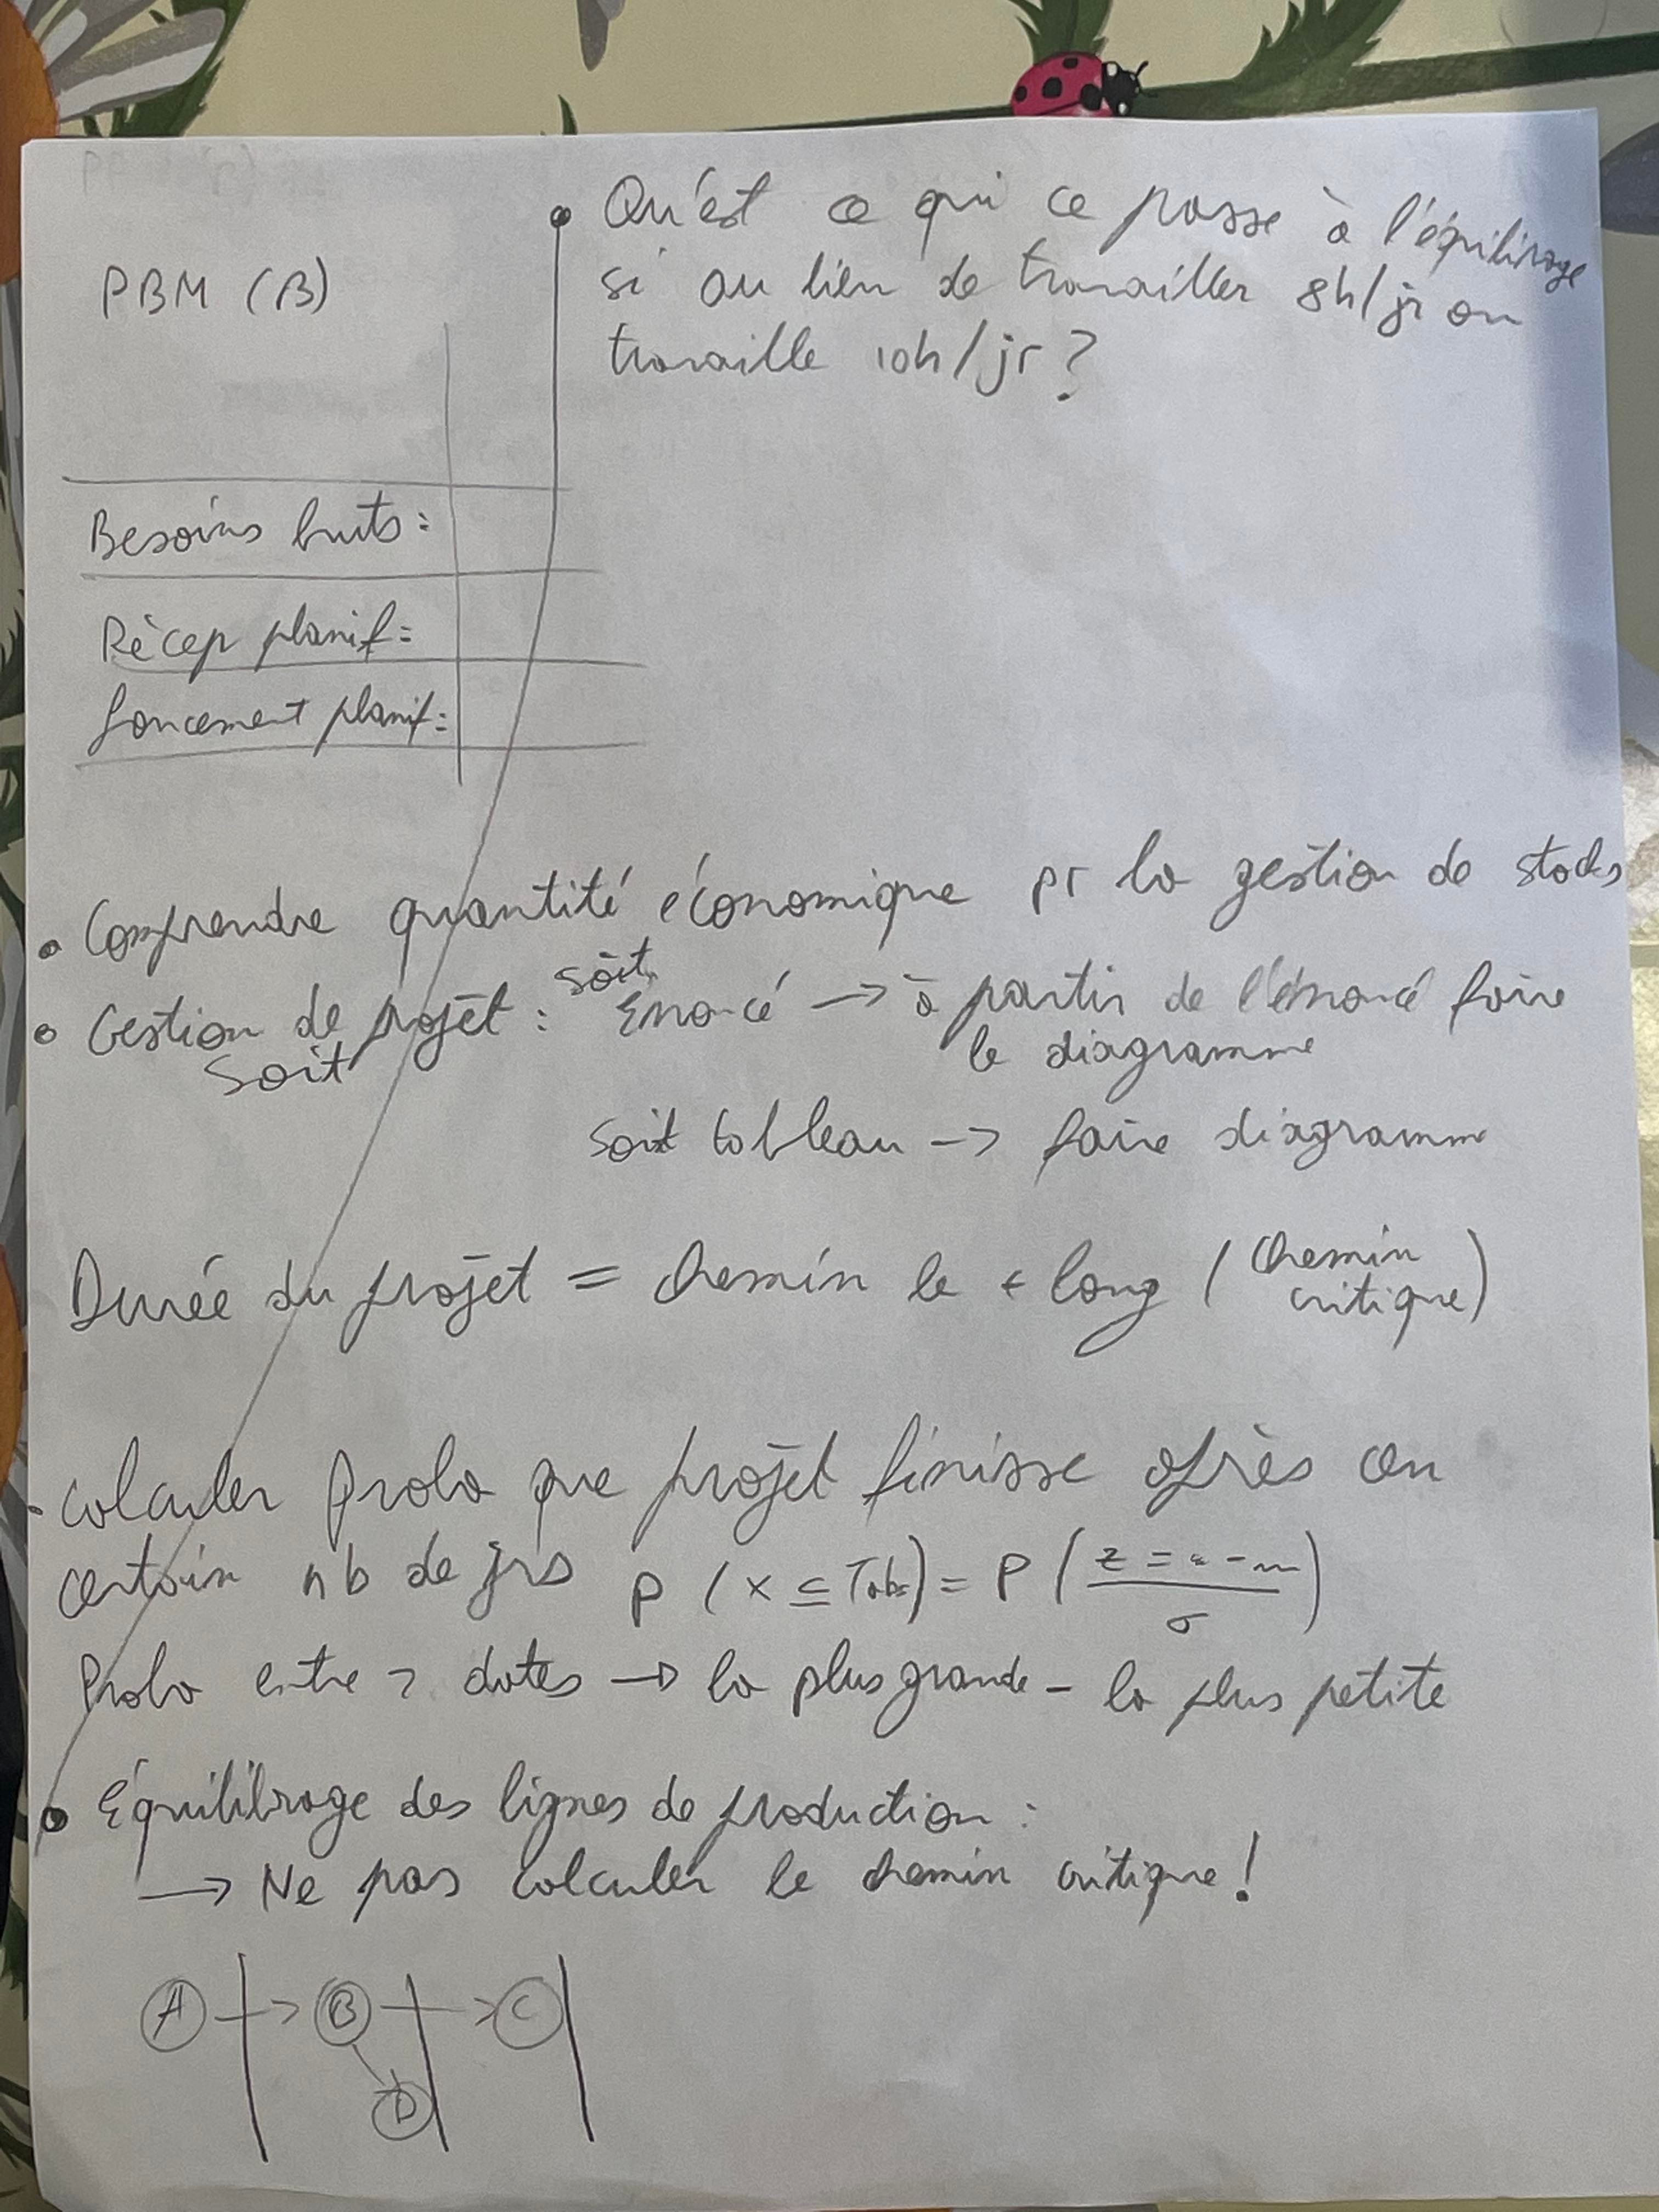 PBM (B)
Besoins bruts :
Récep planif =
Lancement planif =
• Qu'est ce qui ce passe à l'équilibrage
si au lieu de travailler 8h/jr on
travaille 10h/jr ?
• Comprendre quantité économique pr la gestion de stocks
• Gestion de projet : soit Énoncé → à partir de l'énoncé faire
soit
le diagramme
soit tableau → faire diagramme
Durée du projet = chemin le + long (chemin
critique)
- Calculer proba que projet finisse après un
certain nb de jrs P (x ≤ Tobs) = P (z = - m / σ)
Proba entre 2 dates → la plus grande - la plus petite
• Équilibrage des lignes de production :
→ Ne pas calculer le chemin critique !
A → B → C
D